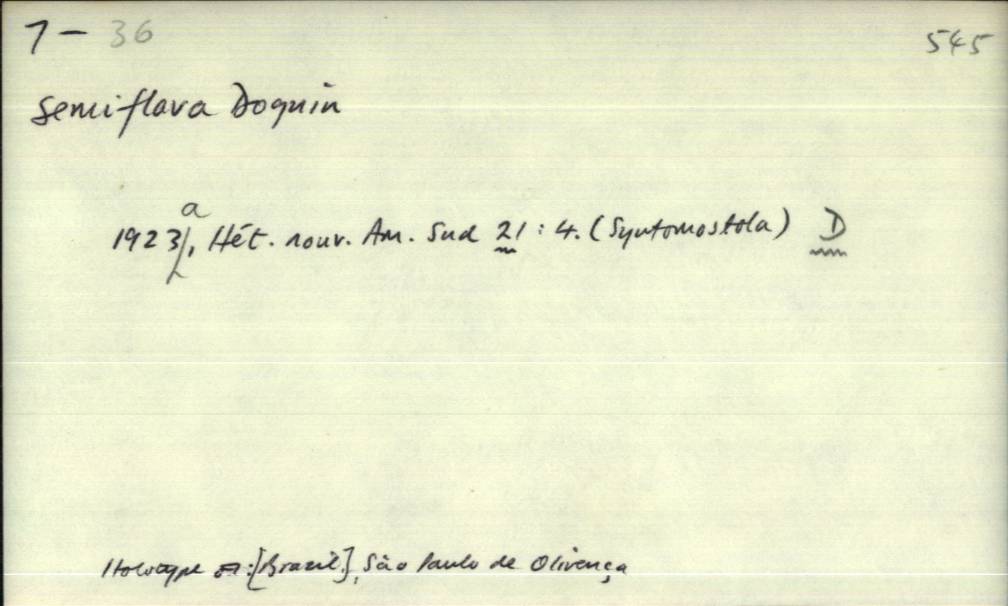 7 – 36 545
semiflava Dognin
1923a, Hét. nouv. Am. Sud 21 : 4. (Syntomostola) D
Holotype : [Brazil], São Paulo de Olivença